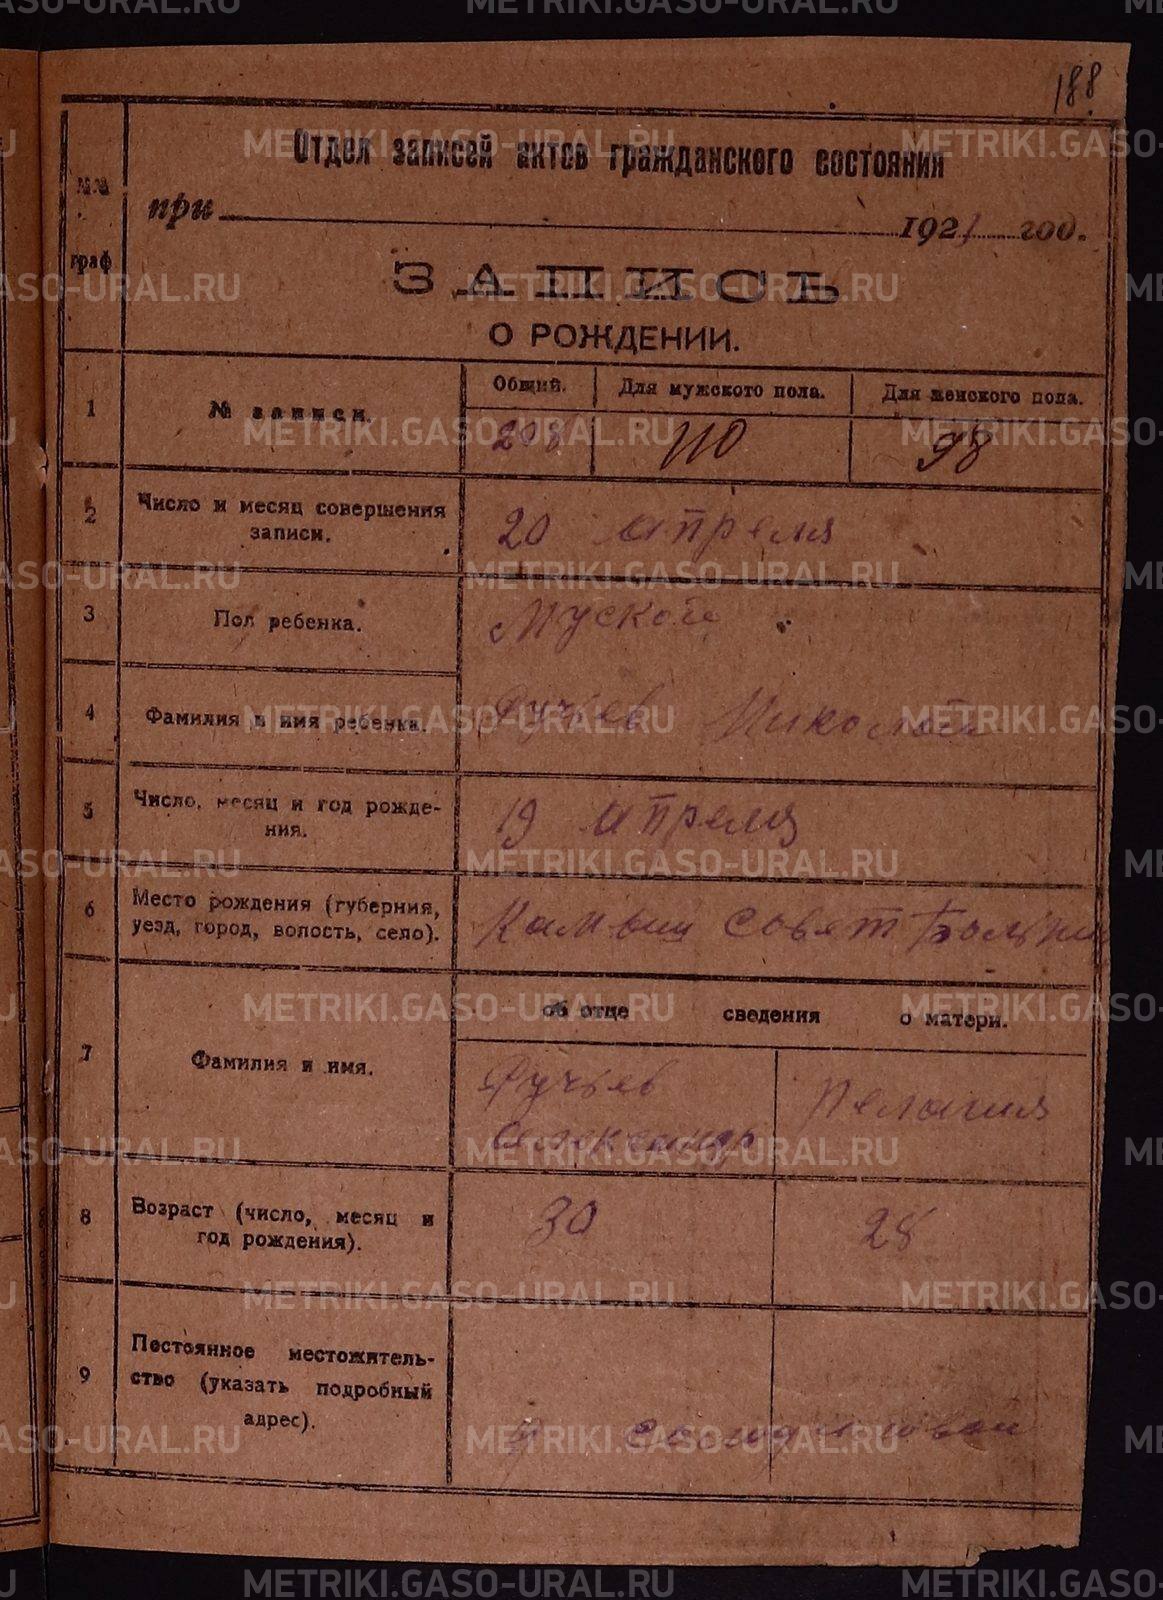 188
Отдел записей актов гражданского состояния
№№
граф
при 1921 год.
ЗАПИСЬ
О РОЖДЕНИИ.
Общий. Для мужского пола. Для женского пола.
1 № записи. 208 110 98
2 Число и месяц совершения
записи.
20 апреля
3 Пол ребенка. Муской
4 Фамилия и имя ребенка. Фучьев Николай
5 Число, месяц и год рожде-
ния.
19 апреля
6 Место рождения (губерния,
уезд, город, волость, село).
Камыш совет
об отце сведения о матери.
7 Фамилия и имя.
Фучьев Пелагия
Александр
8 Возраст (число, месяц и
год рождения).
30 28
9 Постоянное местожитель-
ство (указать подробный
адрес).
METRIKI.GASO-URAL.RU